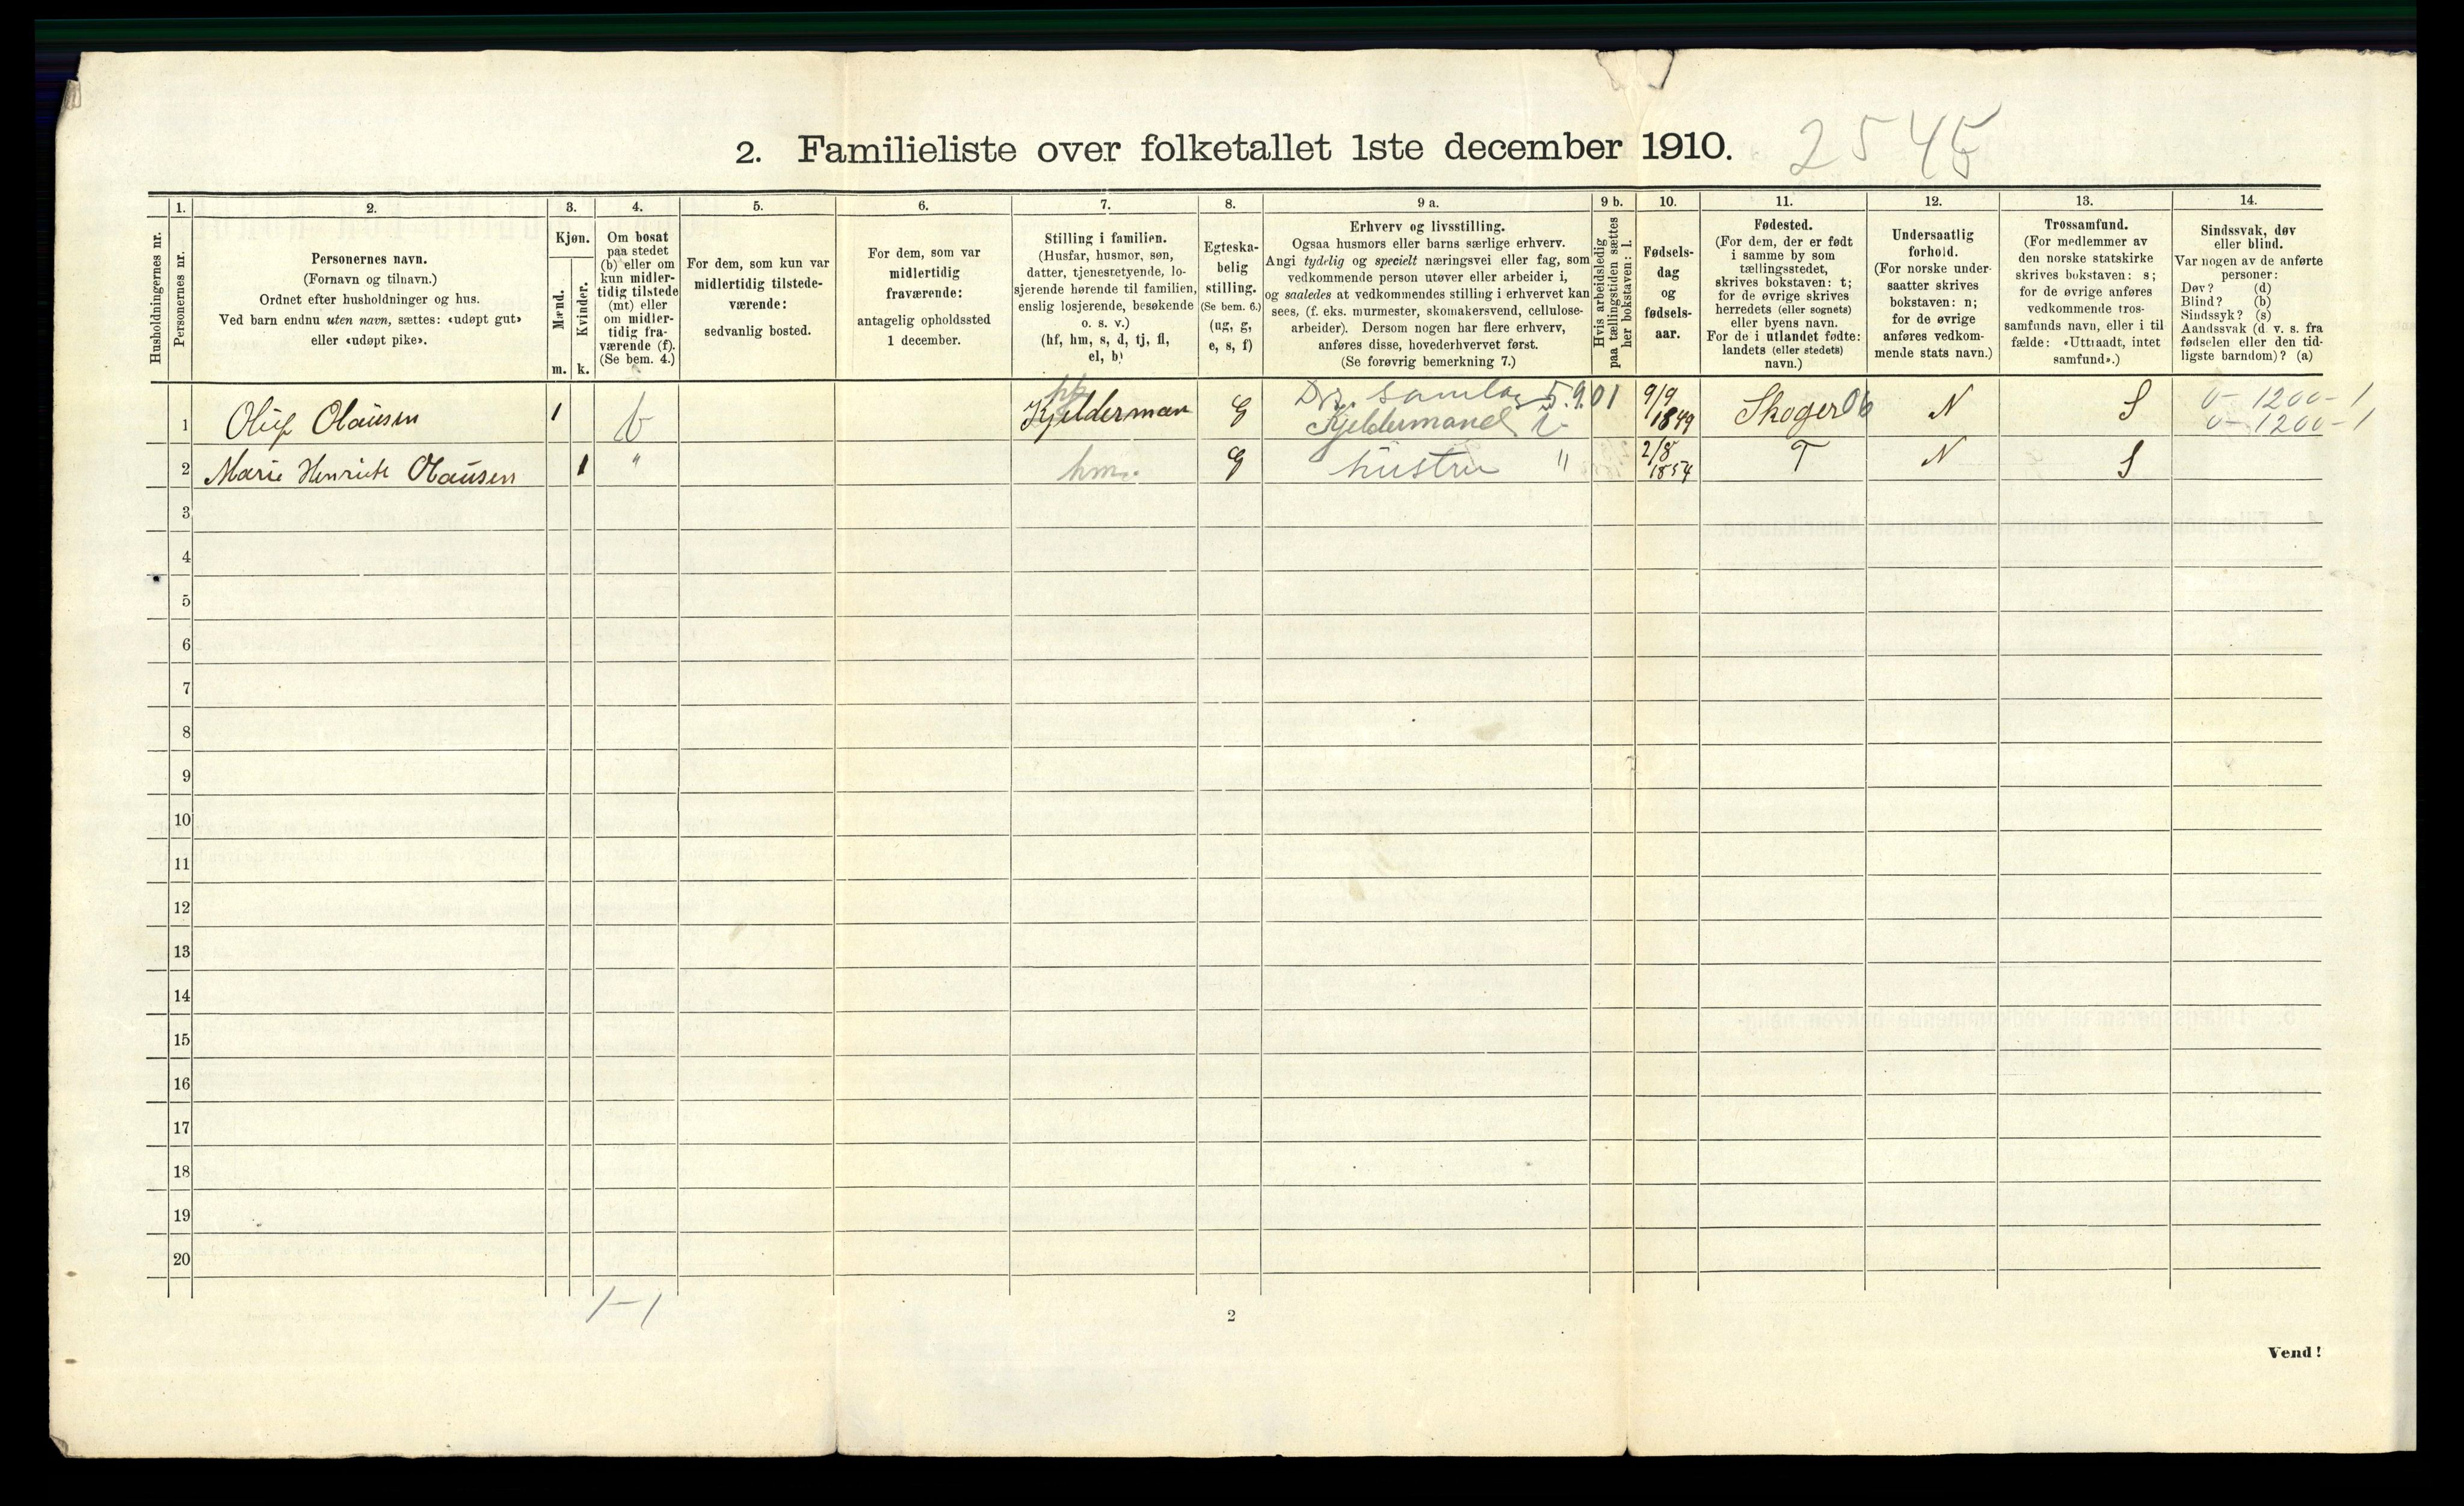 2. Familieliste over folketallet 1ste december 1910. 2545
Husholdningernes nr.
1.
Personernes nr.
2.
Personernes navn.
(Fornavn og tilnavn.)
Ordnet efter husholdninger og hus.
Ved barn endnu uten navn, sættes: «udøpt gut»
eller «udøpt pike».
3.
Kjøn.
Mænd.
Kvinder.
m. k.
4.
Om bosat
paa stedet
(b) eller om
kun midler-
tidig tilstede
(mt) eller
om midler-
tidig fra-
værende (f).
(Se bem. 4.)
5.
For dem, som kun var
midlertidig tilstede-
værende:
sedvanlig bosted.
6.
For dem, som var
midlertidig
fraværende:
antagelig opholdssted
1 december.
7.
Stilling i familien.
(Husfar, husmor, søn,
datter, tjenestetyende, lo-
sjerende hørende til familien,
enslig losjerende, besøkende
o. s. v.)
(hf, hm, s, d, tj, fl,
el, b)
8.
Egteska-
belig
stilling.
(Se bem. 6.)
(ug, g,
e, s, f)
9 a.
Erhverv og livsstilling.
Ogsaa husmors eller barns særlige erhverv.
Angi tydelig og specielt næringsvei eller fag, som
vedkommende person utøver eller arbeider i,
og saaledes at vedkommendes stilling i erhvervet kan
sees, (f. eks. murmester, skomakersvend, cellulose-
arbeider). Dersom nogen har flere erhverv,
anføres disse, hovederhvervet først.
(Se forøvrig bemerkning 7.)
9 b.
Hvis arbeidsledig
paa tællingstiden sættes
her bokstaven: l.
10.
Fødsels-
dag
og
fødsels-
aar.
11.
Fødested.
(For dem, der er født
i samme by som
tællingsstedet,
skrives bokstaven: t;
for de øvrige skrives
herredets (eller sognets)
eller byens navn.
For de i utlandet fødte:
landets (eller stedets)
navn.)
12.
Undersaatlig
forhold.
(For norske under-
saatter skrives
bokstaven: n;
for de øvrige
anføres vedkom-
mende stats navn.)
13.
Trossamfund.
(For medlemmer av
den norske statskirke
skrives bokstaven: s;
for de øvrige anføres
vedkommende tros-
samfunds navn, eller i til
fælde: «Uttraadt, intet
samfund».)
14.
Sindssvak, døv
eller blind.
Var nogen av de anførte
personer:
Døv? (d)
Blind? (b)
Sindssyk? (s)
Aandssvak (d. v. s. fra
fødselen eller den tid-
ligste barndom)? (a)
hf Dr. Samlag 5.9.01 9/9 0 - 1200 - 1
1 Oluf Olausen 1 b Kjelderman G Kjeldermand 1849 Skoger 06 N S 0 - 1200 - 1
2 Marie Henriette Olausen 1 " hm. G hustru " 2/8 1854 T N S
3
4
5
6
7
8
9
10
11
12
13
14
15
16
17
18
19
20
1-1
2
Vend!